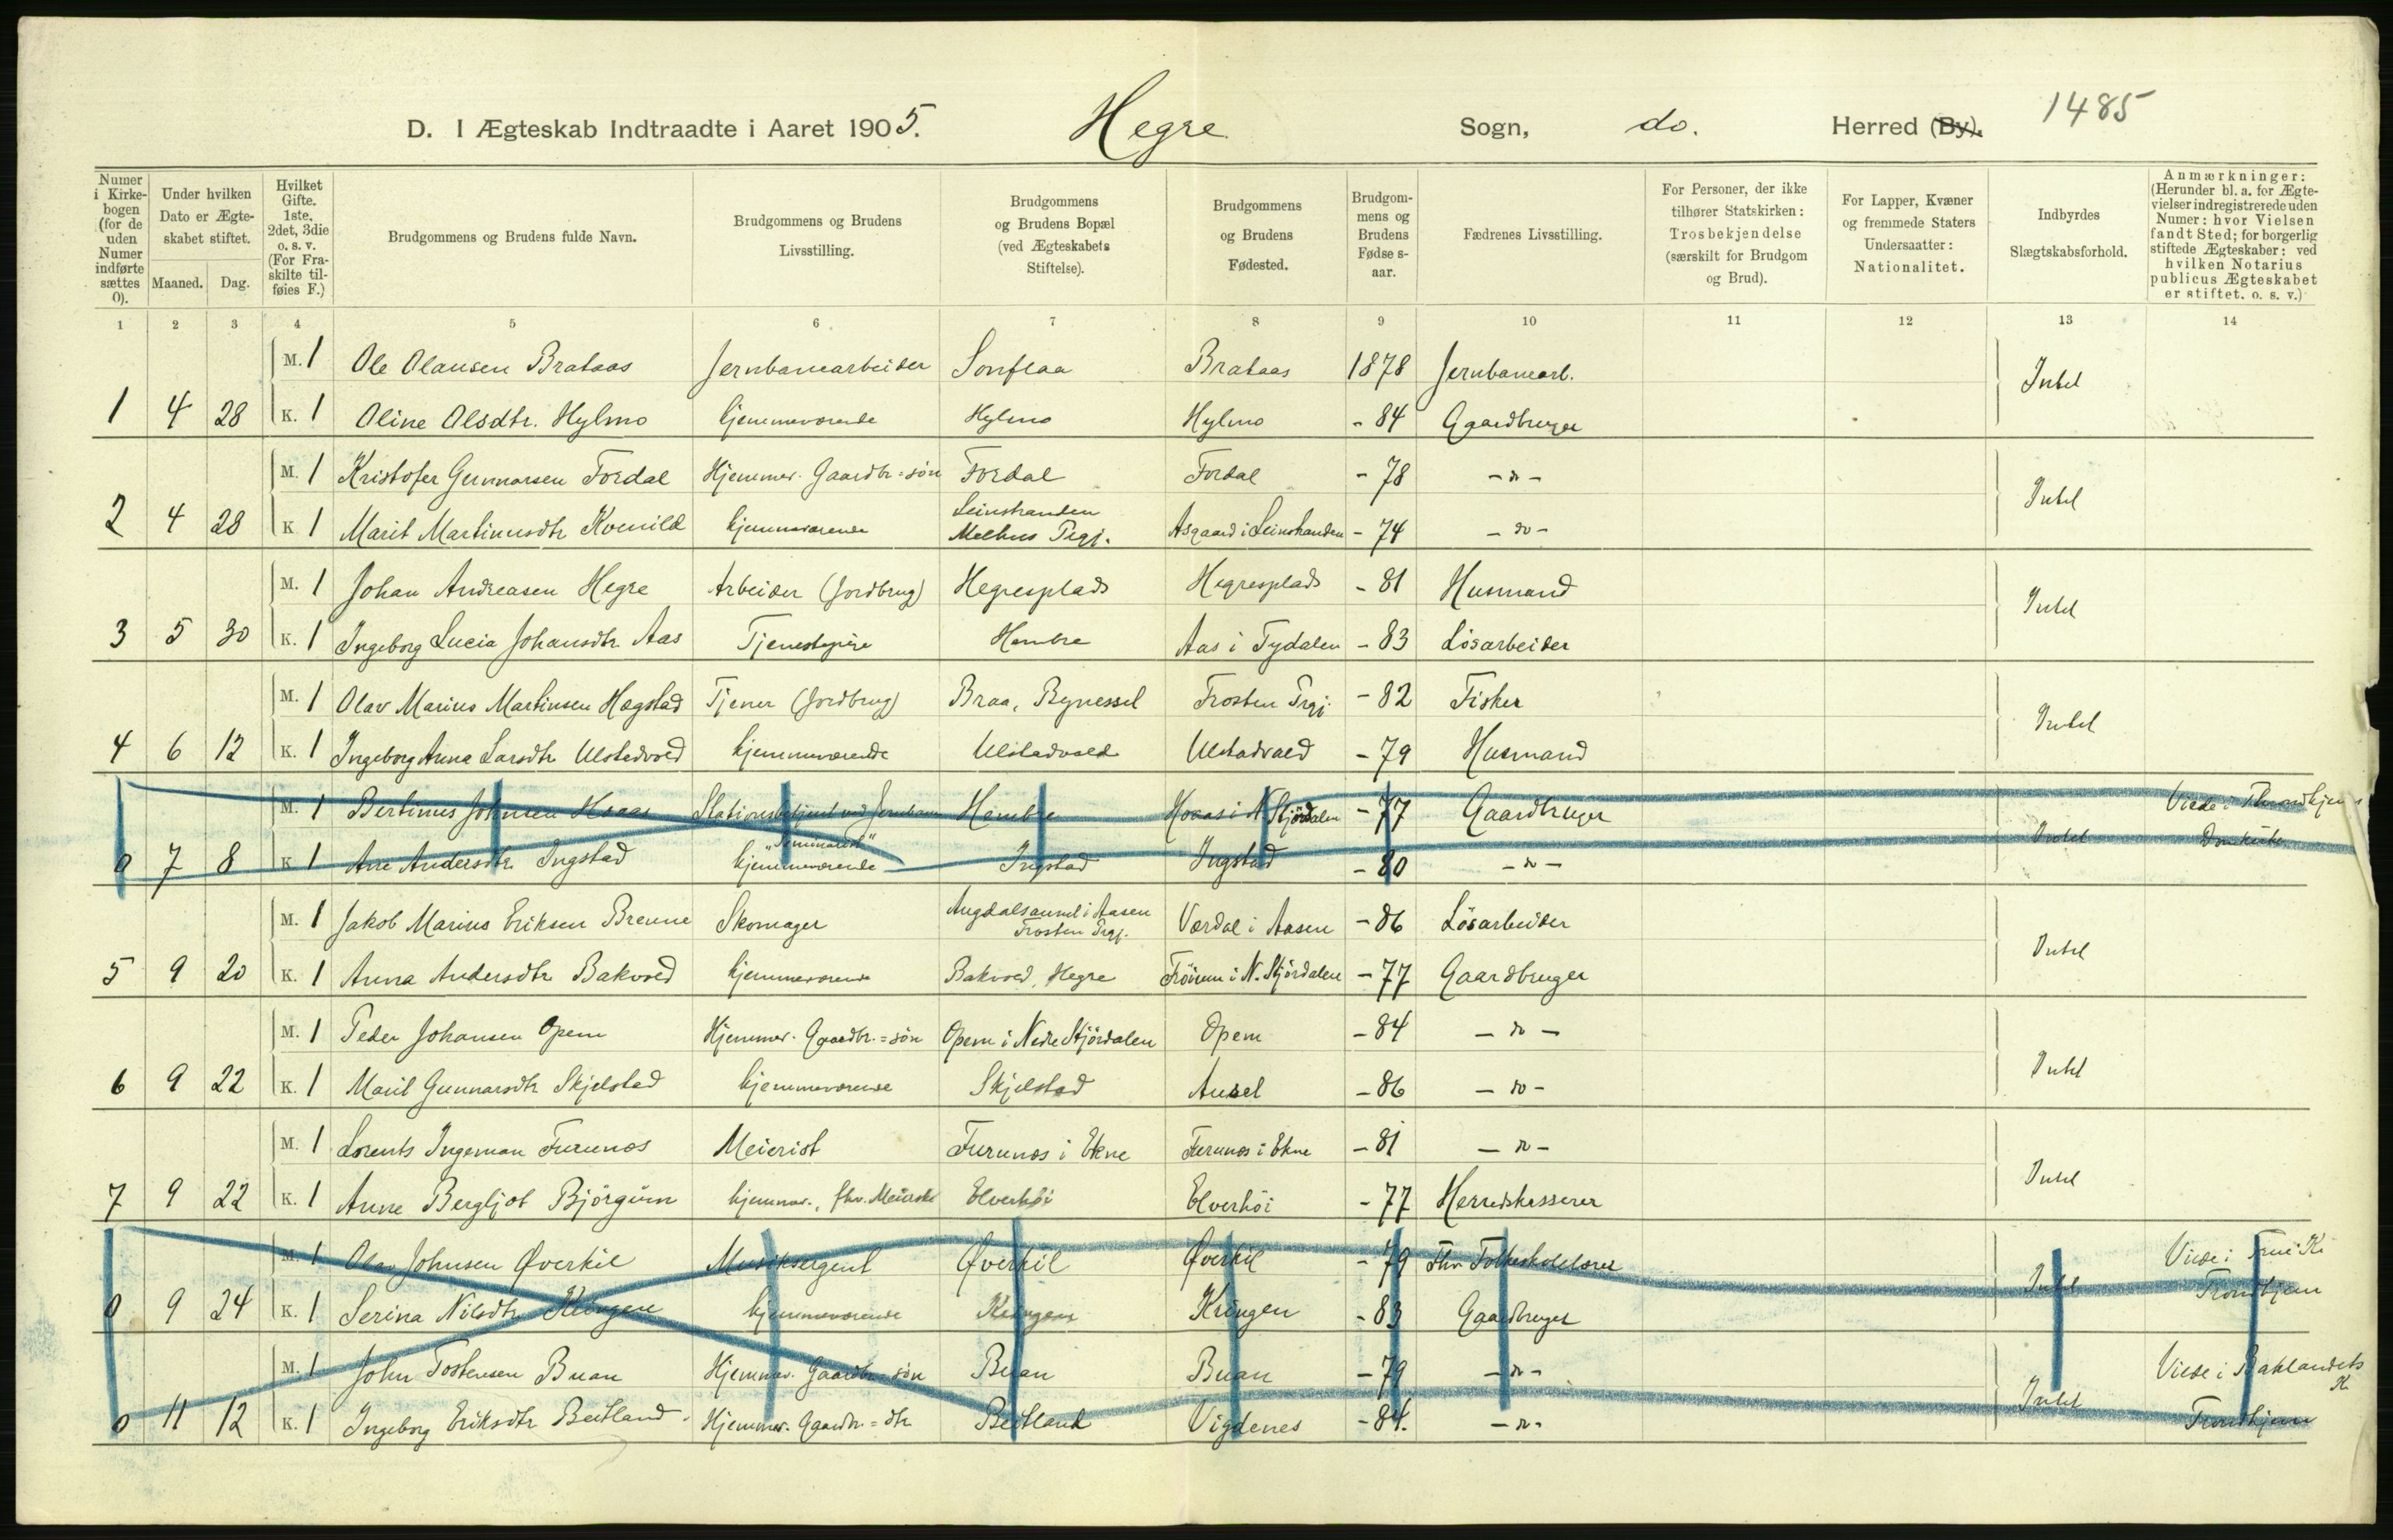 D. I Ægteskab Indtraadte i Aaret 1905. Hegre Sogn, do. Herred (By). 1485
Numer i Kirkebogen (for de uden Numer indførte sættes 0). Under hvilken Dato er Ægteskabet stiftet. Maaned. Dag. Hvilket Gifte. 1ste, 2det, 3die o. s. v. (For Fraskilte tilføies F.) Brudgommens og Brudens fulde Navn. Brudgommens og Brudens Livsstilling. Brudgommens og Brudens Bopæl (ved Ægteskabets Stiftelse). Brudgommens og Brudens Fødested. Brudgommens og Brudens Fødselsaar. Fædrenes Livsstilling. For Personer, der ikke tilhører Statskirken: Trosbekjendelse (særskilt for Brudgom og Brud). For Lapper, Kvæner og fremmede Staters Undersaatter: Nationalitet. Indbyrdes Slægtskabsforhold. Anmærkninger: (Herunder bl. a. for Ægtevielser indregistrerede uden Numer: hvor Vielsen fandt Sted; for borgerlig stiftede Ægteskaber: ved hvilken Notarius publicus Ægteskabet er stiftet. o. s. v.)
1 2 3 4 5 6 7 8 9 10 11 12 13 14
M. 1 Ole Olausen Brataas Jernbanearbeider Sonflaa Brataas 1878 Jernbanearb. Intet
1 4 28 K. 1 Oline Olsdtr. Hylmo hjemmeværende Hylmo Hylmo - 84 Gaardbruger
M. 1 Kristofer Gunnarsen Fordal Hjemmev. Gaardbr.=søn Fordal Fordal - 78 - do - Intet
2 4 28 K 1 Marit Martinusdtr Kvenild hjemmeværende Leinstranden Melhus Prgj. Asgaard i Leinstranden - 74 - do -
M. 1 Johan Andreasen Hegre Arbeider (Jordbrug) Hegresplads Hegresplads - 81 Husmand Intet
3 5 30 K. 1 Ingeborg Lucia Johansdtr Aas Tjenestepige Hembre Aas i Tydalen - 83 Løsarbeider
M. 1 Olav Marius Martinsen Hagstad Tjener (Jordbrug) Braa, Bynesset Frosten Prgj. - 82 Fisker Intet
4 6 12 K. 1 Ingeborg Anna Larsdtr Ulstadvold hjemmeværende Ulstadvold Ulstadvald - 79 Husmand
M. 1 Bertinus Johnsen Hoaas Stationsbetjent ved Jernbanen Hembre Hoaas i N. Stjördalen - 77 Gaardbruger Intet Viede i Throndhjems
0 7 8 K 1 Ane Andersdtr. Ingstad "Seminarist" hjemmeværende Ingstad Ingstad - 80 - do - Domkirke
M. 1 Jakob Marius Eriksen Brenne Skomager Augdalsaunet i Aasen Frosten Prgj. Vordal i Aasen - 86 Lösarbeider Intet
5 9 20 K. 1 Anna Andersdtr Bakvold hjemmeværende Bakvold, Hegre Fröisum i N. Stjördalen - 77 Gaardbruger
M. 1 Peder Johansen Opem Hjemmev. Gaardbr.=søn Opem i Nedre Stjördalen Opem - 84 - do - Intet
6 9 22 K. 1 Marit Gunnarsdtr Skjelstad hjemmeværende Skjelstad Aunet - 86 - do -
M. 1 Lorents Ingeman Furunes Meierist Furunes i Ekne Furunes i Ekne - 81 - do - Intet
7 9 22 K. 1 Anne Bergljot Björgum hjemmev., fhv. Meierske Elverhöi Elverhöi - 77 Herredskasserer
M. 1 Olav Johnsen Øverkil Musiksergent Øverkil Øverkil - 79 Fhv. Folkeskolelærer Intet Viede i Frue K.
0 9 24 K. 1 Serina Nilsdtr Kringen hjemmeværende Kringen Kringen - 83 Gaardbruger Trondhjem
M. 1 John Tostensen Buan Hjemmev. Gaardbr.=søn Buan Buan - 79 - do - Intet Viede i Baklandets K.
0 11 12 K. 1 Ingeborg Eriksdtr Beitland Hjemmev. Gaardbr.=dtr Beitland Vigdenes - 84. - do - Trondhjem